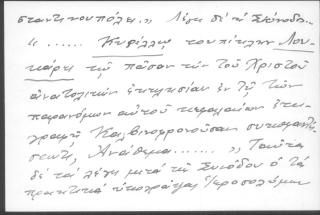 σταντινουπόλει.,, Λέγει δὲ ἡ Σύνοδος
"...... Κυρίλλῳ τοὐπίκλην Λου-
κάρει τῷ πᾶσαν τὴν τοῦ Χριστοῦ
ἀνατολικὴν ἐκκλησίαν ἐν τῇ τῶν
παρανόμων αὐτοῦ κεφαλαίων ἐπι-
γραφῇ Καλβινοφρονοῦσαν συκοφαντή-
σαντι, Ἀνάθεμα......,, Ταῦτα
δὲ τὰ λέγει μετὰ τῆς Συνόδου ὁ τὰ
πρακτικὰ ὑπογράψας Ἱεροσολύμων